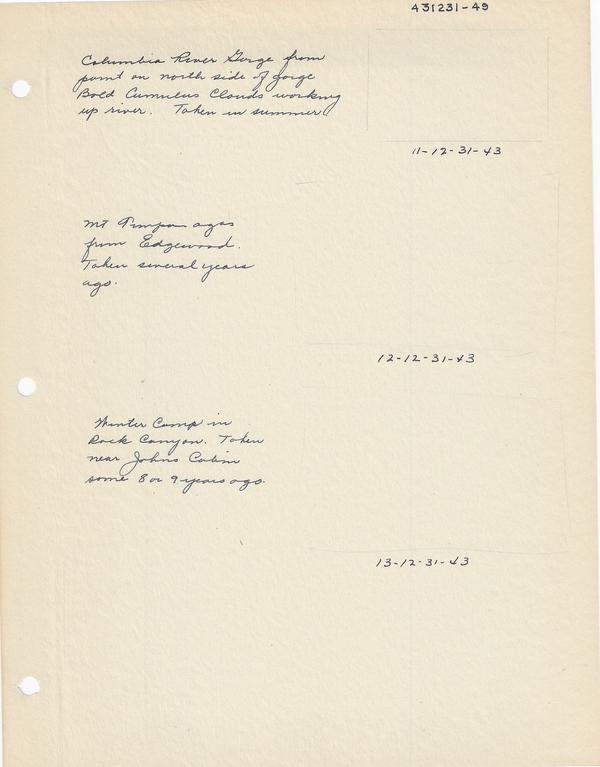 431231-49
Columbia River Gorge from
point on north side of gorge
Bold Cumulus Clouds working
up river. Taken in summer
11-12-31-43
Mt Timpanogas
from Edgewood.
Taken several years
ago.
12-12-31-43
Winter Camp in
Rock Canyon. Taken
near Johns Cabin
some 8 or 9 years ago.
13-12-31-43